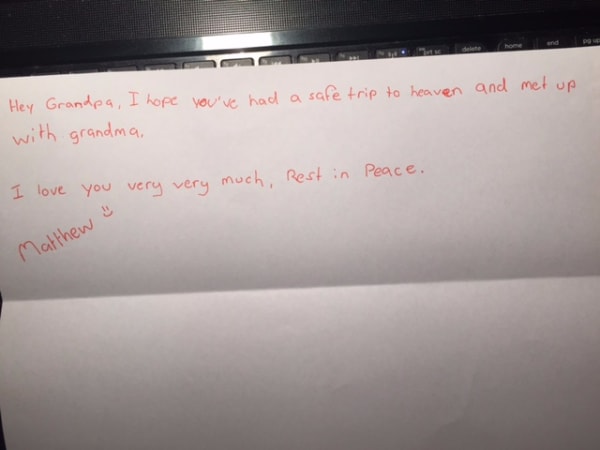 prt sc delete home end pg up
Hey Grandpa, I hope you've had a safe trip to heaven and met up
with grandma.
I love you very very much, Rest in Peace.
Matthew :)